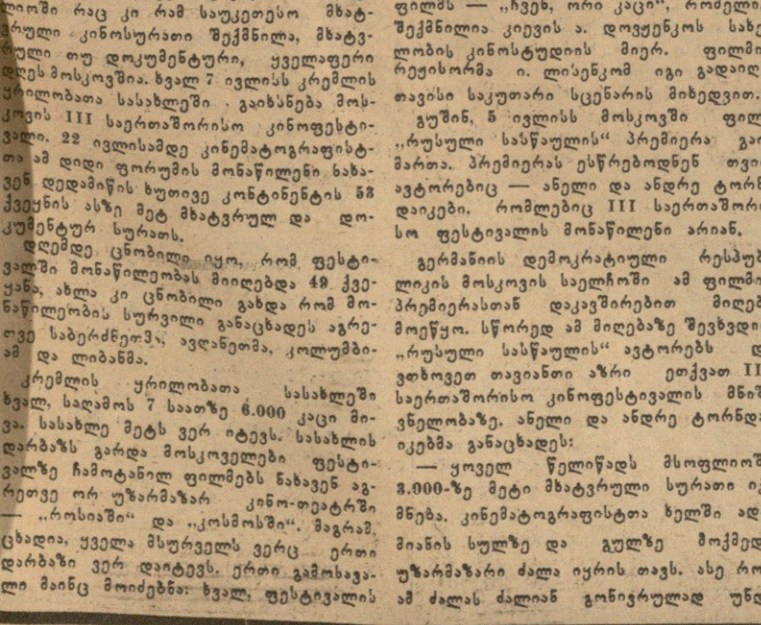 ლიოში რაც კი რამ საუკეთესო მხატ-
ვრული კინოსურათი შექმნილა, მხატვ-
რული თუ დოკუმენტური, ყველაფერი
დღეს მოსკოვშია. ხვალ 7 ივლისს კრემლის
ყრილობათა სასახლეში გაიხსნება მოს-
კოვის III საერთაშორისო კინოფესტი-
ვალი. 22 ივლისამდე კინემატოგრაფისტ-
თა ამ დიდი ფორუმის მონაწილენი ნახა-
ვენ დედამიწის ხუთივე კონტინენტის 53
ქვეყნის ასზე მეტ მხატვრულ და დო-
კუმენტურ სურათს.
დღემდე ცნობილი იყო, რომ ფესტი-
ვალში მონაწილეობას მიიღებდა 49 ქვე-
ყანა, ახლა კი ცნობილი გახდა რომ მო-
ნაწილეობის სურვილი განაცხადეს აგრე-
თვე საბერძნეთმა, ავღანეთმა, კოლუმბი-
ამ და ლიბანმა.
კრემლის ყრილობათა სასახლეში
ხვალ, საღამოს 7 საათზე 6.000 კაცი მი-
ვა. სასახლე მეტს ვერ იტევს. სასახლის
დარბაზს გარდა მოსკოველები ფესტი-
ვალზე ჩამოტანილ ფილმებს ნახავენ აგ-
რეთვე ორ უზარმაზარ კინო-თეატრში
— „როსიაში“ და „კოსმოსში“. მაგრამ,
ცხადია, ყველა მსურველს ვერც ერთი
დარბაზი ვერ დაიტევს. ერთი გამოსავა-
ლი მაინც მოიძებნა: ხვალ, ფესტივალის
ფილმს — „ჩვენ, ორი კაცი“, რომელი
შექმნილია კიევის ა. დოვჟენკოს სახე
ლობის კინოსტუდიის მიერ. ფილმი
რეჟისორმა ი. ლისენკომ იგი გადაიღ
თავისი საკუთარი სცენარის მიხედვით.
გუშინ, 5 ივლისს მოსკოვში ფილ
„რუსული სასწაულის“ პრემიერა გაი
მართა. პრემიერას ესწრებოდნენ თვი
ავტორებიც — ანელი და ანდრე ტორნ
დაიკები, რომლებიც III საერთაშორი
სო ფესტივალის მონაწილენი არიან.
გერმანიის დემოკრატიული რესპუბ
ლიკის მოსკოვის საელჩოში ამ ფილმი
პრემიერასთან დაკავშირებით მიღებ
მოეწყო. სწორედ ამ მიღებაზე შევხვდი
„რუსული სასწაულის“ ავტორებს დ
ვთხოვეთ თავიანთი აზრი ეთქვათ II
საერთაშორისო კინოფესტივალის მნიშ
ვნელობაზე. ანელი და ანდრე ტორნდა
იკებმა განაცხადეს:
— ყოველ წელიწადს მსოფლიოშ
3.000-ზე მეტი მხატვრული სურათი იქ
მნება. კინემატოგრაფისტთა ხელში ად
მიანის სულზე და გულზე მოქმედ
უზარმაზარი ძალა იყრის თავს. ასე რო
ამ ძალას ძალიან გონივრულად უნდ